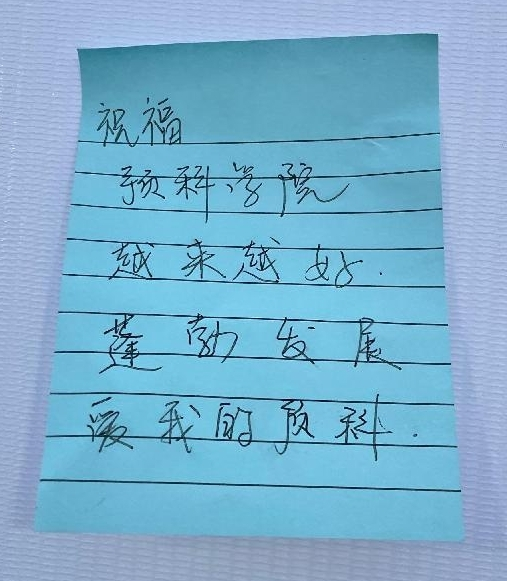 祝福
预科学院
越来越好.
蓬勃发展
爱我的预科.